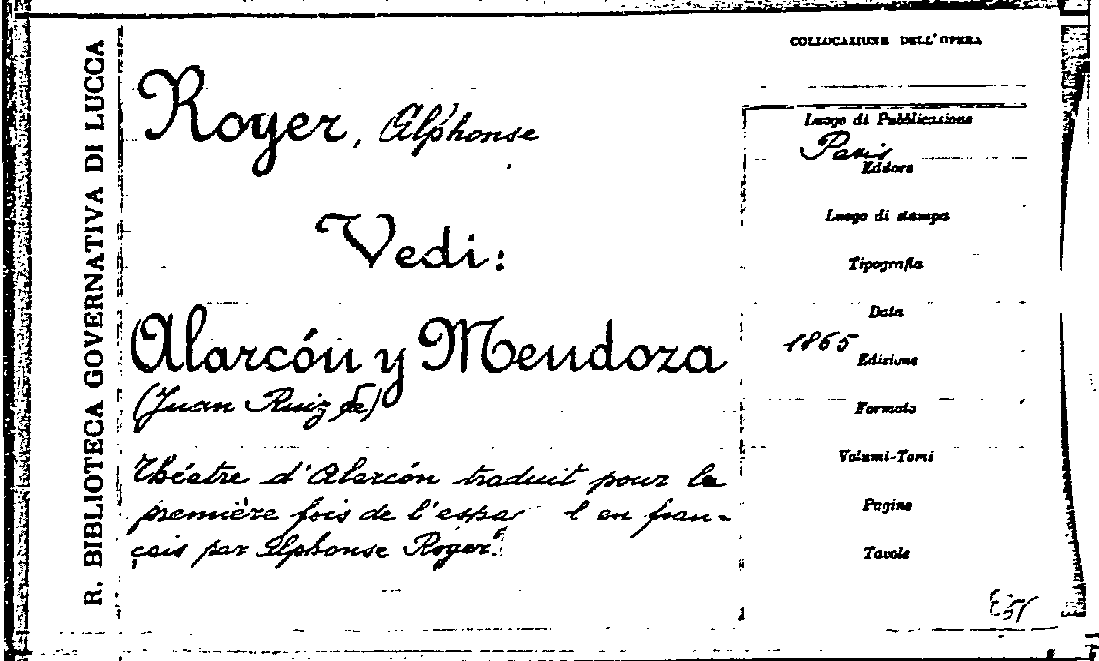 R. BIBLIOTECA GOVERNATIVA DI LUCCA
Royer, Alphonse
Vedi:
Alarcón y Mendoza
(Juan Ruiz de)
Théatre d'Alarcón traduit pour la
première fois de l'espa l en fran-
çais par Alphonse Royer.
COLLOCAZIONE DELL'OPERA
Luogo di Pubblicazione
Paris
Editore
Luogo di stampa
Tipografia
Data
1865
Edizione
Formato
Volumi-Tomi
Pagine
Tavole